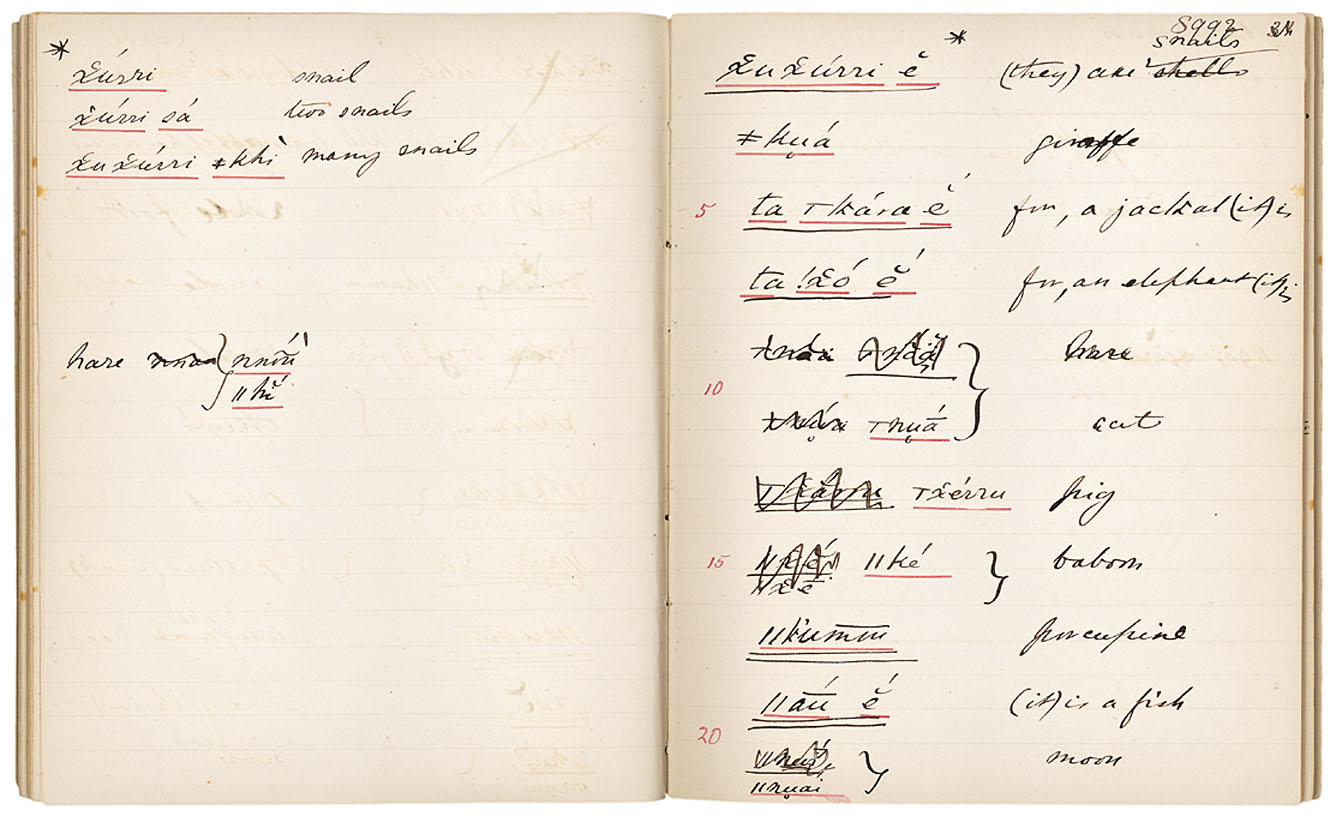 *
x̆úrri snail
x̆úrri sá two snails
x̆ux̆úrri ǂkhì many snails
hare nnóṅ
ǁkĭ́
8992
*
snails
x̆ux̆úrri ĕ́ (they) are shells
ǂkụá giraffe
5 ta ꞆkáraĔ́ for, a jackal (it) is
ta !x̆ó ĕ́ for, an elephant (it) is
hare
10
Ꞇnụá cat
Ꞇx̆érru pig
15 ǁké baboon
ǁx̆é
ǁkumm̅ porcupine
ǁáú ĕ́ (it) is a fish
20
moon
ǁnụai